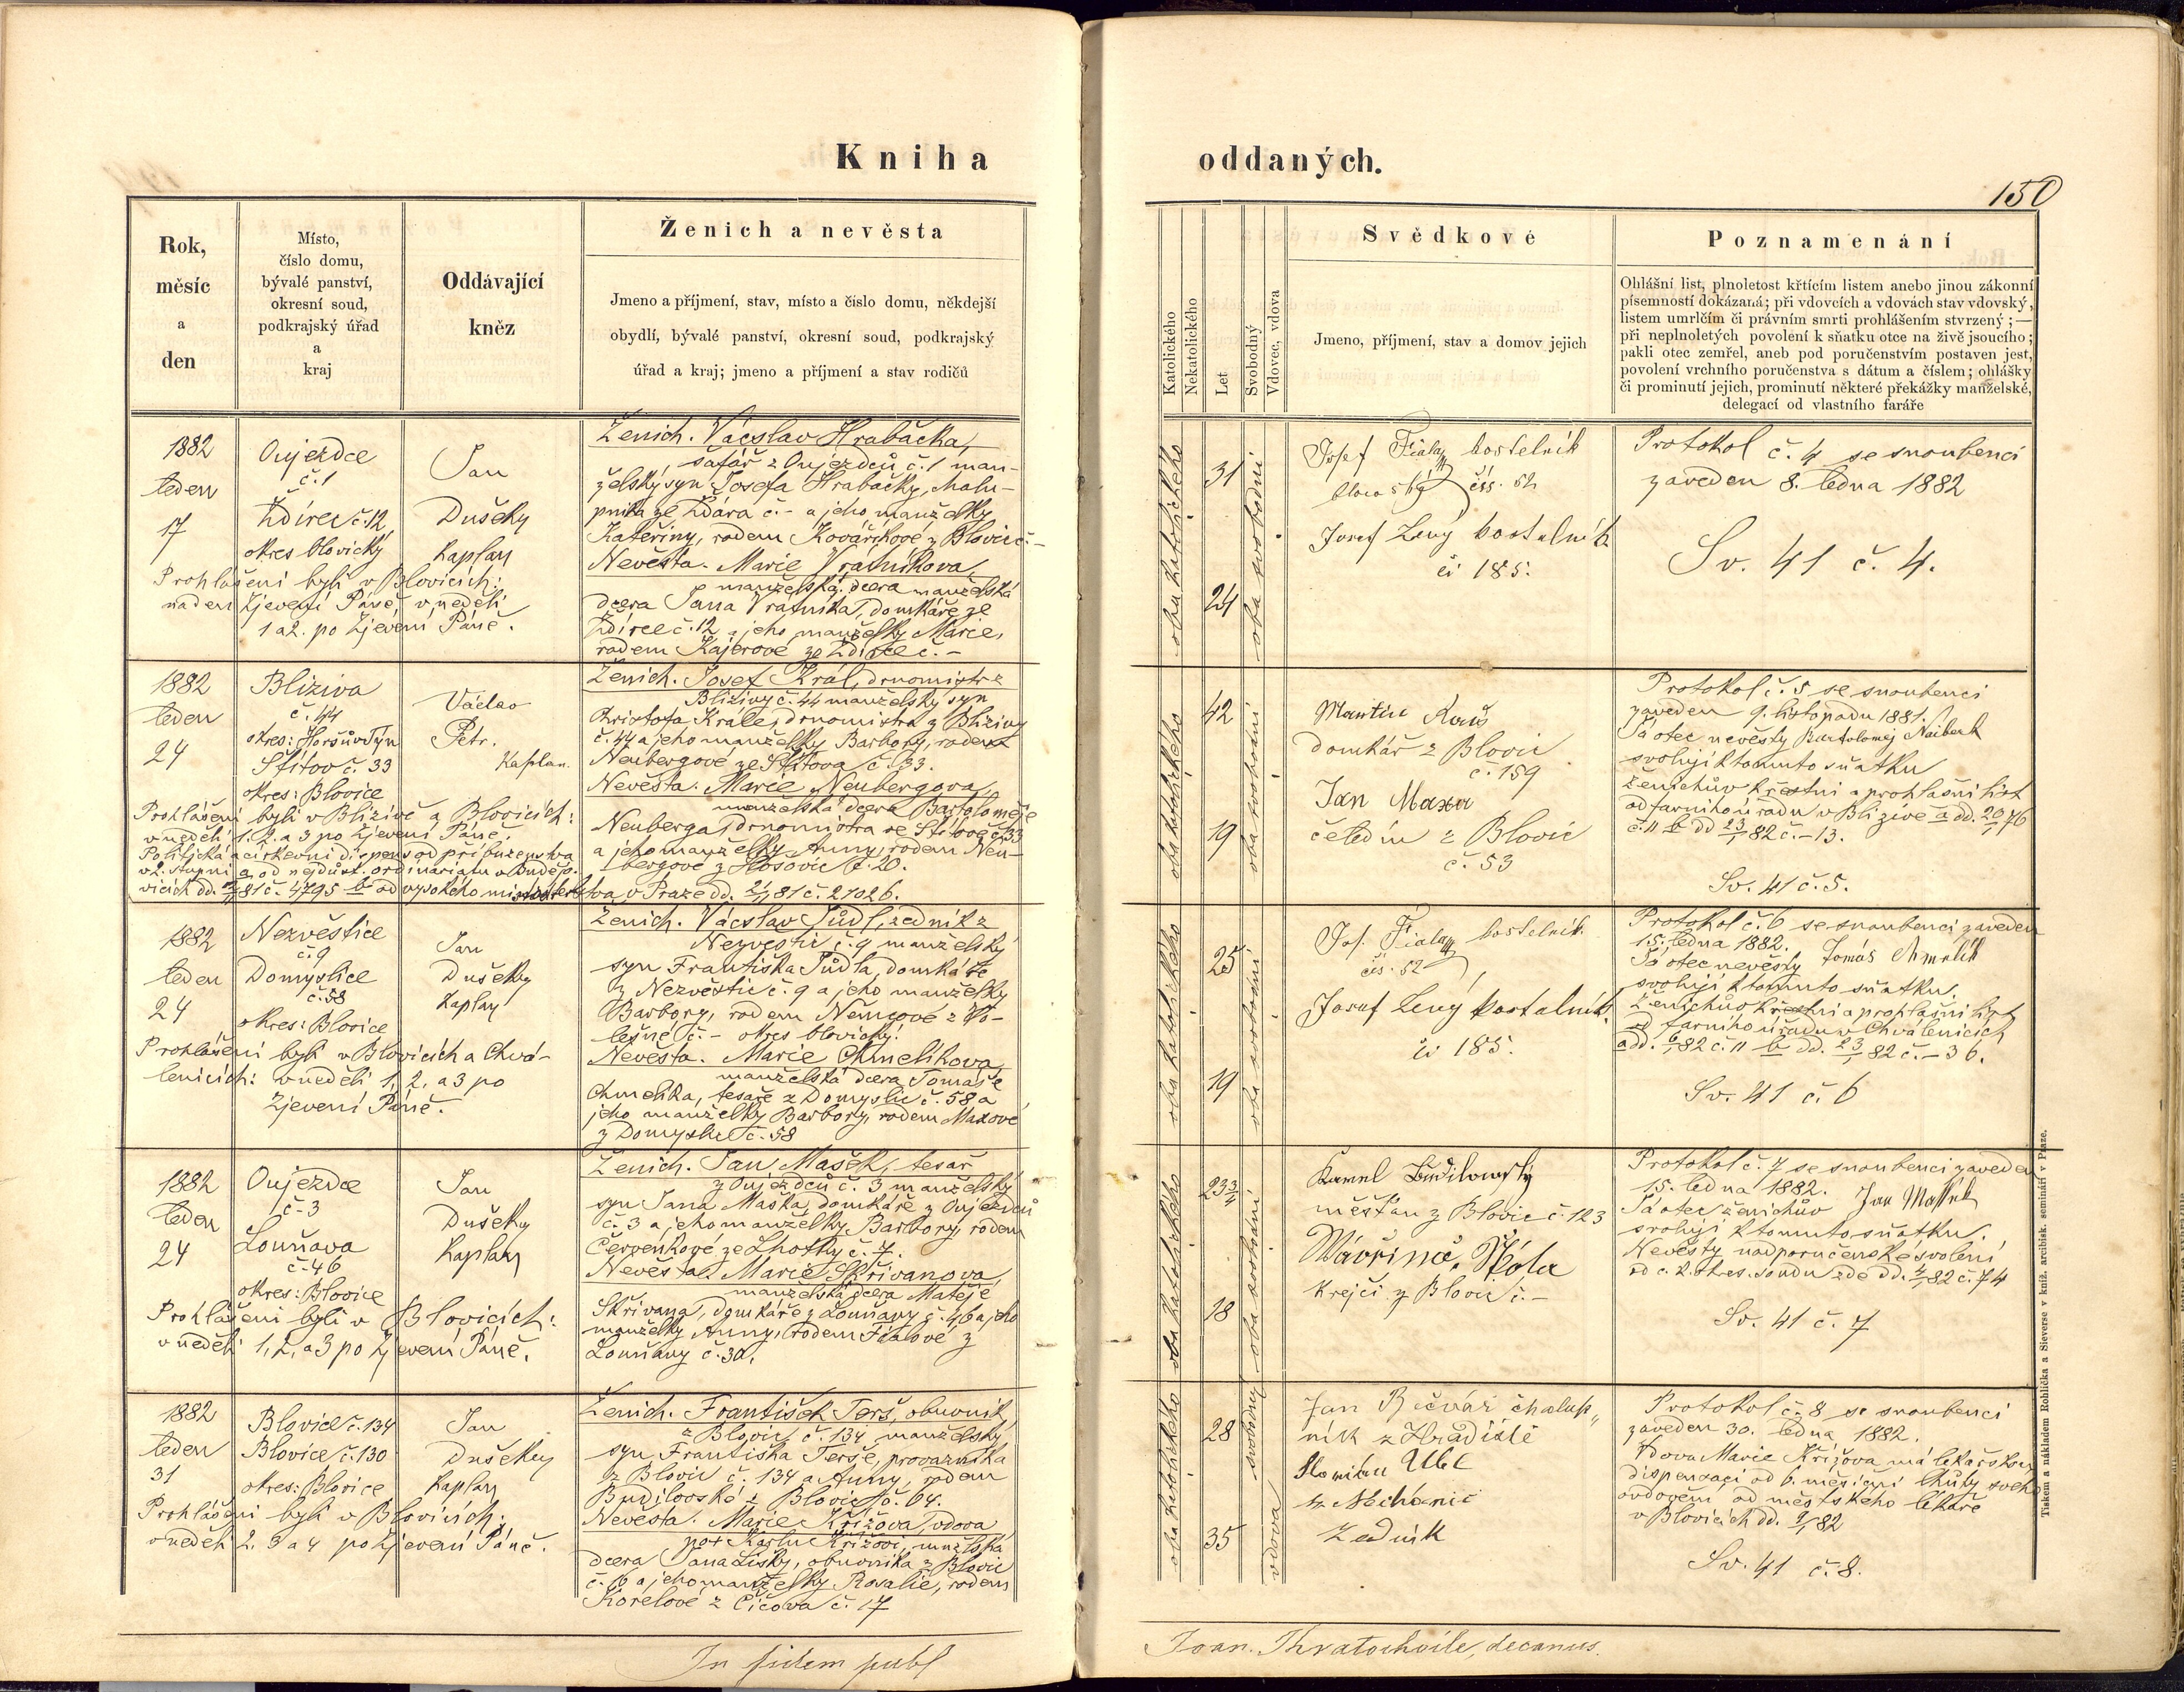 Kniha
Rok,
měsíc
a
den
Místo,
číslo domu,
bývalé panství,
okresní soud,
podkrajský úřad
a
kraj
Oddávající
kněz
Ženich a nevěsta
Jmeno a příjmení, stav, místo a číslo domu, někdejší
obydlí, bývalé panství, okresní soud, podkrajský
úřad a kraj; jmeno a příjmení a stav rodičů
1882
leden
17
Oujezdce
č. 1
Ždírec č. 12
okres blovický
Jan
Dušeky
Kaplan
Prohlášeni byli v Blovicích:
na den Zjevení Páně, v neděli
1 a 2. po Zjevení Páně.
Ženich. Václav Hrabačka,
šafář z Oujezdců č. 1 man-
želský syn Josefa Hrabačky, chalu-
pníka ze Ždara č. - a jeho manželky
Kateřiny, rodem Kovaříkové z Blovic č. -
Nevěsta. Marie Vratníkova,
manželská dcera
dcera Jana Vratníka, domkáře ze
Ždírce č. 12 a jeho manželky Marie,
rodem Kajerové ze Ždírce č. -
1882
leden
24
Bliziva
č. 44
okres: Horšův Týn
Štítov č. 33
okres: Blovice
Václav
Petr.
Kaplan.
Prohlášeni byli v Blizivě a Blovicích:
v neděli 1. 2. a 3 po Zjevení Páně.
Politická a církevní dispens od příbuzenstva
v 2. stupni a od nejdůst. ordinariatu v Budějo-
vicích dd. 81 č. 4795 b od vysokého místodržitelstva v Praze dd. 81 č. 21026.
Ženich. Josef Král, drnomistr z
Blizivy č. 44 manželský syn
Kristofa Krále, drnomistra z Blizivy
č. 44 a jeho manželky Barbory, rodem
Neubergové ze Štítova č. 33.
Nevěsta. Marie Neubergova,
manželská dcera Bartoloměje
Neuberga, drnomistra ze Štítova č. 33
a jeho manželky Anny, rodem Neu-
bergové z Hosovic č. 20.
1882
leden
24
Nezvěstice
č. 9
Domyslice
č. 58
okres: Blovice
Jan
Dušeky
Kaplan
Prohlášeni byli v Blovicích a Chvá-
lenicích: v neděli 1, 2, a 3 po
Zjevení Páně.
Ženich. Václav Půdl, zedník z
Nezvěstic č. 9 manželský
syn Františka Půdla, domkáře
z Nezvěstic č. 9 a jeho manželky
Barbory, rodem Němcové z Ko-
lešné č. - okres blovický.
Nevěsta. Marie Chmelíkova
manželská dcera Tomáše
Chmelíka, tesaře z Domyslic č. 58 a
jeho manželky Barbory, rodem Maxové
z Domyslic č. 58
1882
leden
24
Oujezdce
č. 3
Louňova
č. 46
okres: Blovice
Jan
Dušeky
Kaplan
Prohlášeni byli v Blovicích:
v neděli 1, 2, a 3 po Zjevení Páně.
Ženich. Jan Mašek, tesař
z Oujezdců č. 3 manželský
syn Jana Maška, domkáře z Oujezdců
č. 3 a jeho manželky Barbory, rodem
Červenkové ze Lhotky č. 7.
Nevěsta. Marie Skřivanova,
manželská dcera Matěje
Skřivana, domkáře z Louňovy č. 46 a jeho
manželky Anny, rodem Fialové z
Louňovy č. 30.
1882
leden
31
Blovice č. 134
Blovice č. 130
okres: Blovice
Jan
Dušeky
Kaplan
Prohlášeni byli v Blovicích:
v neděli 2. 3 a 4 po Zjevení Páně.
Ženich. František Terš, obuvník
z Blovic č. 134 manželský
syn Františka Terše, provazníka
z Blovic č. 134 a Anny, rodem
Budilovské z Blovic č. 64.
Nevěsta. Marie Křížova, vdova
po † Karlu Křížovi, manželská
dcera Jana Lisky, obuvníka z Blovic
č. 16 a jeho manželky Rosalie, rodem
Korelové z Číčova č. 17
In fidem publ
oddaných.
150
Katolického
Nekatolického
Let
Svobodný
Vdovec, vdova
Svědkové
Jmeno, příjmení, stav a domov jejich
Poznamenání
Ohlášní list, plnoletost křtícím listem anebo jinou zákonní
písemností dokázaná; při vdovcích a vdovách stav vdovský,
listem umrlčím či právním smrti prohlášením stvrzený; —
při neplnoletých povolení k sňatku otce na živě jsoucího;
pakli otec zemřel, aneb pod poručenstvím postaven jest,
povolení vrchního poručenstva s dátum a číslem; ohlášky
či prominutí jejich, prominutí některé překážky manželské,
delegací od vlastního faráře
oba katolického
31
24
oba svobodní
Josef Fiala kostelník
čís. 52
Josef Lený kostelník
či 185.
Protokol č. 4 se snoubenci
zaveden 8. ledna 1882
Sv. 41 č. 4.
oba katolického
42
19
oba svobodní
Martin Kauš
domkář z Blovic
č. 159
Jan Maxa
čeledín z Blovic
č. 53
Protokol č. 5 se snoubenci
zaveden 9. listopadu 1881.
Já otec nevěsty Bartolomej Naiberk
svoluji k tomuto sňatku
Ženichův křestní a prohlašní list
od farního úřadu v Blizivě a dd. 76
č. 11 b dd 82 č. – 13.
Sv. 41 č. 5.
oba katolického
25
19
oba svobodní
Jos. Fiala kostelník
čís. 52
Josef Lený kostelník.
či 185.
Protokol č. 6 se snoubenci zaveden
15. ledna 1882.
Já otec nevěsty Tomáš Chmelík
svoluji k tomuto sňatku.
Ženichův křestní a prohlašní list
od farního úřadu v Chválenicích
a dd. 82 č. 11 b dd. 82 č. – 36.
Sv. 41 č. 6
oba katolického
23 3/4
18
oba svobodní
Karel Budilowský
měšťan z Blovic č. 123
Wavřinec Škola
Krejčí z Blovic č. –
Protokol č. 7 se snoubenci zaveden
15. ledna 1882.
Já otec ženichův Jan Massek
svoluji k tomuto sňatku.
Nevěsty nadporučenské svolení
od c. k. okres. soudu zde dd. 82 č. 74
Sv. 41 č. 7
oba katolického
28
35
svobodný
vdova
Jan Bečvář chalup„
ník z Hradiště
z Nechanic
Zedník
Protokol č. 8 se snoubenci
zaveden 30. ledna 1882.
Vdova Marie Křížova má lékařskou
dispensaci od 6. měsíční lhůty svého
ovdovění od městského lékaře
v Blovicích dd. 82
Sv. 41 č. 8.
Joan. Khratochvile, decanus.
Tiskem a nákladem Rohlíčka a Sieverse v kníž. arcibisk. semináři v Praze.